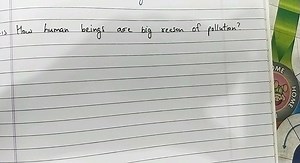 is How human beings are big reason of pollution?
HOME